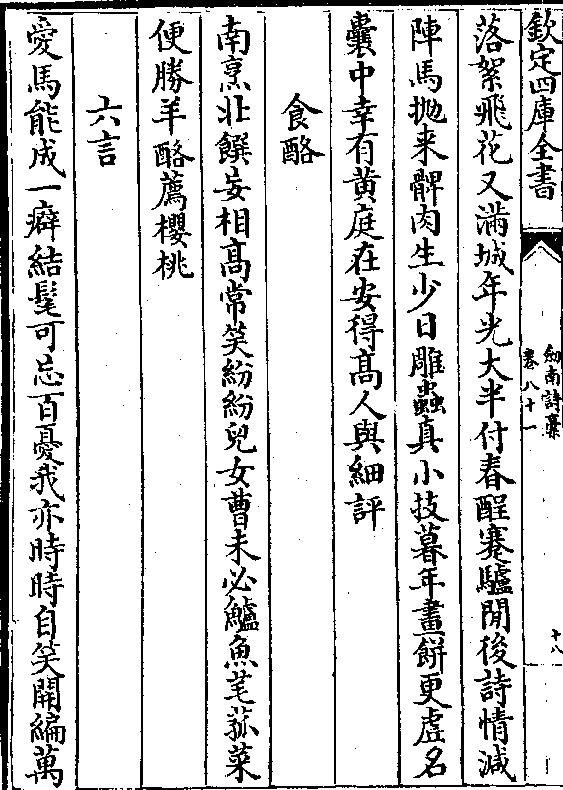 欽定四庫全書
劔南詩藁
卷八十一
十八
落絮飛花又滿城年光大半付春酲蹇驢閒後詩情減
陣馬抛来髀肉生少日雕蟲真小技暮年畫餅更虚名
囊中幸有黄庭在安得髙人與細評
食酪
南烹北饌妄相髙常笑紛紛兒女曹未必鱸魚芼菰菜
便勝羊酪薦櫻桃
六言
愛馬能成一癖結髦可忘百憂我亦時時自笑開編萬